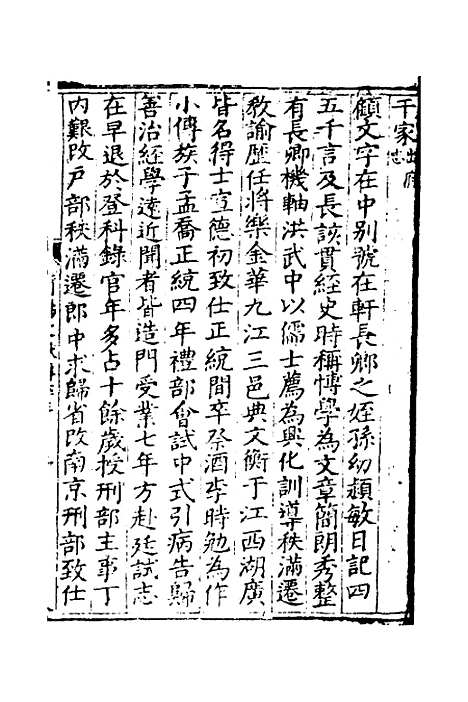 于家 出府志
顧文字在中別號在軒長卿之姪孫幼穎敏日記四
五千言及長該貫經史時稱愽學為文章簡朗秀整
有長卿機軸洪武中以儒士薦為興化訓導秩滿遷
教諭歷任將樂金華九江三邑典文衡于江西湖廣
皆名得士宣德初致仕正統間卒祭酒李時勉為作
小傳族子孟喬正統四年禮部會試中式引病告歸
善治經學遠近聞者皆造門受業七年方赴廷試志
在早退於登科錄官年多占十餘歲授刑部主事丁
內艱改戶部秩滿遷郎中求歸省改南京刑部致仕